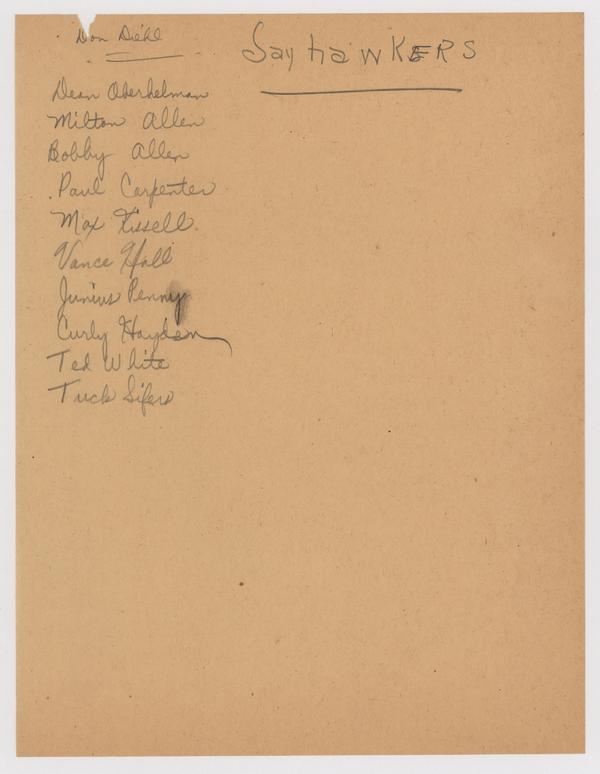 Don Diehl
Jayhawkers
Dean Oberhelman
Milton Allen
Bobby Allen
Paul Carpenter
Max Kissell
Vance Hall
Junius Penny
Curly Hayden
Ted White
Tuck Sifers